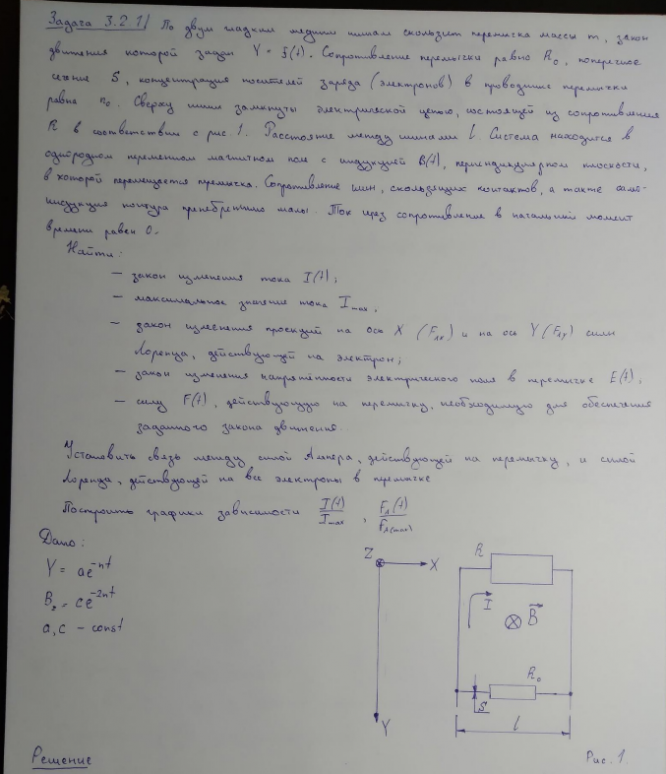 Задача 3.2.1/ По двум гладким медным шинам скользит перемычка массы m, закон
движения которой задан Y = f(t). Сопротивление перемычки равно R₀, поперечное
сечение S, концентрация носителей заряда (электронов) в проводнике перемычки
равна n₀. Сверху шины замкнуты электрической цепью, состоящей из сопротивления
R в соответствии с рис. 1. Расстояние между шинами l. Система находится в
однородном переменном магнитном поле с индукцией B(t), перпендикулярном плоскости,
в которой перемещается перемычка. Сопротивление шин, скользящих контактов, а также само-
индукция контура пренебрежимо малы. Ток через сопротивление в начальный момент
времени равен 0.
Найти:
— закон изменения тока I(t);
— максимальное значение тока I max,
— закон изменения проекций на ось X (Fлx) и на ось Y (Fлy) силы
Лоренца, действующей на электрон;
— закон изменения напряжённости электрического поля в перемычке E(t),
— силу F(t), действующую на перемычку, необходимую для обеспечения
заданного закона движения.
Установить связь между силой Ампера, действующей на перемычку, и силой
Лоренца, действующей на все электроны в перемычке
Построить графики зависимости I(t)/I max, Fл(t)/Fл(max)
Дано:
Y = ae^-nt
B₂ = ce^-2nt
a, c - const
Z
X
Y
R
I
B
R₀
S
l
Решение
Рис. 1.